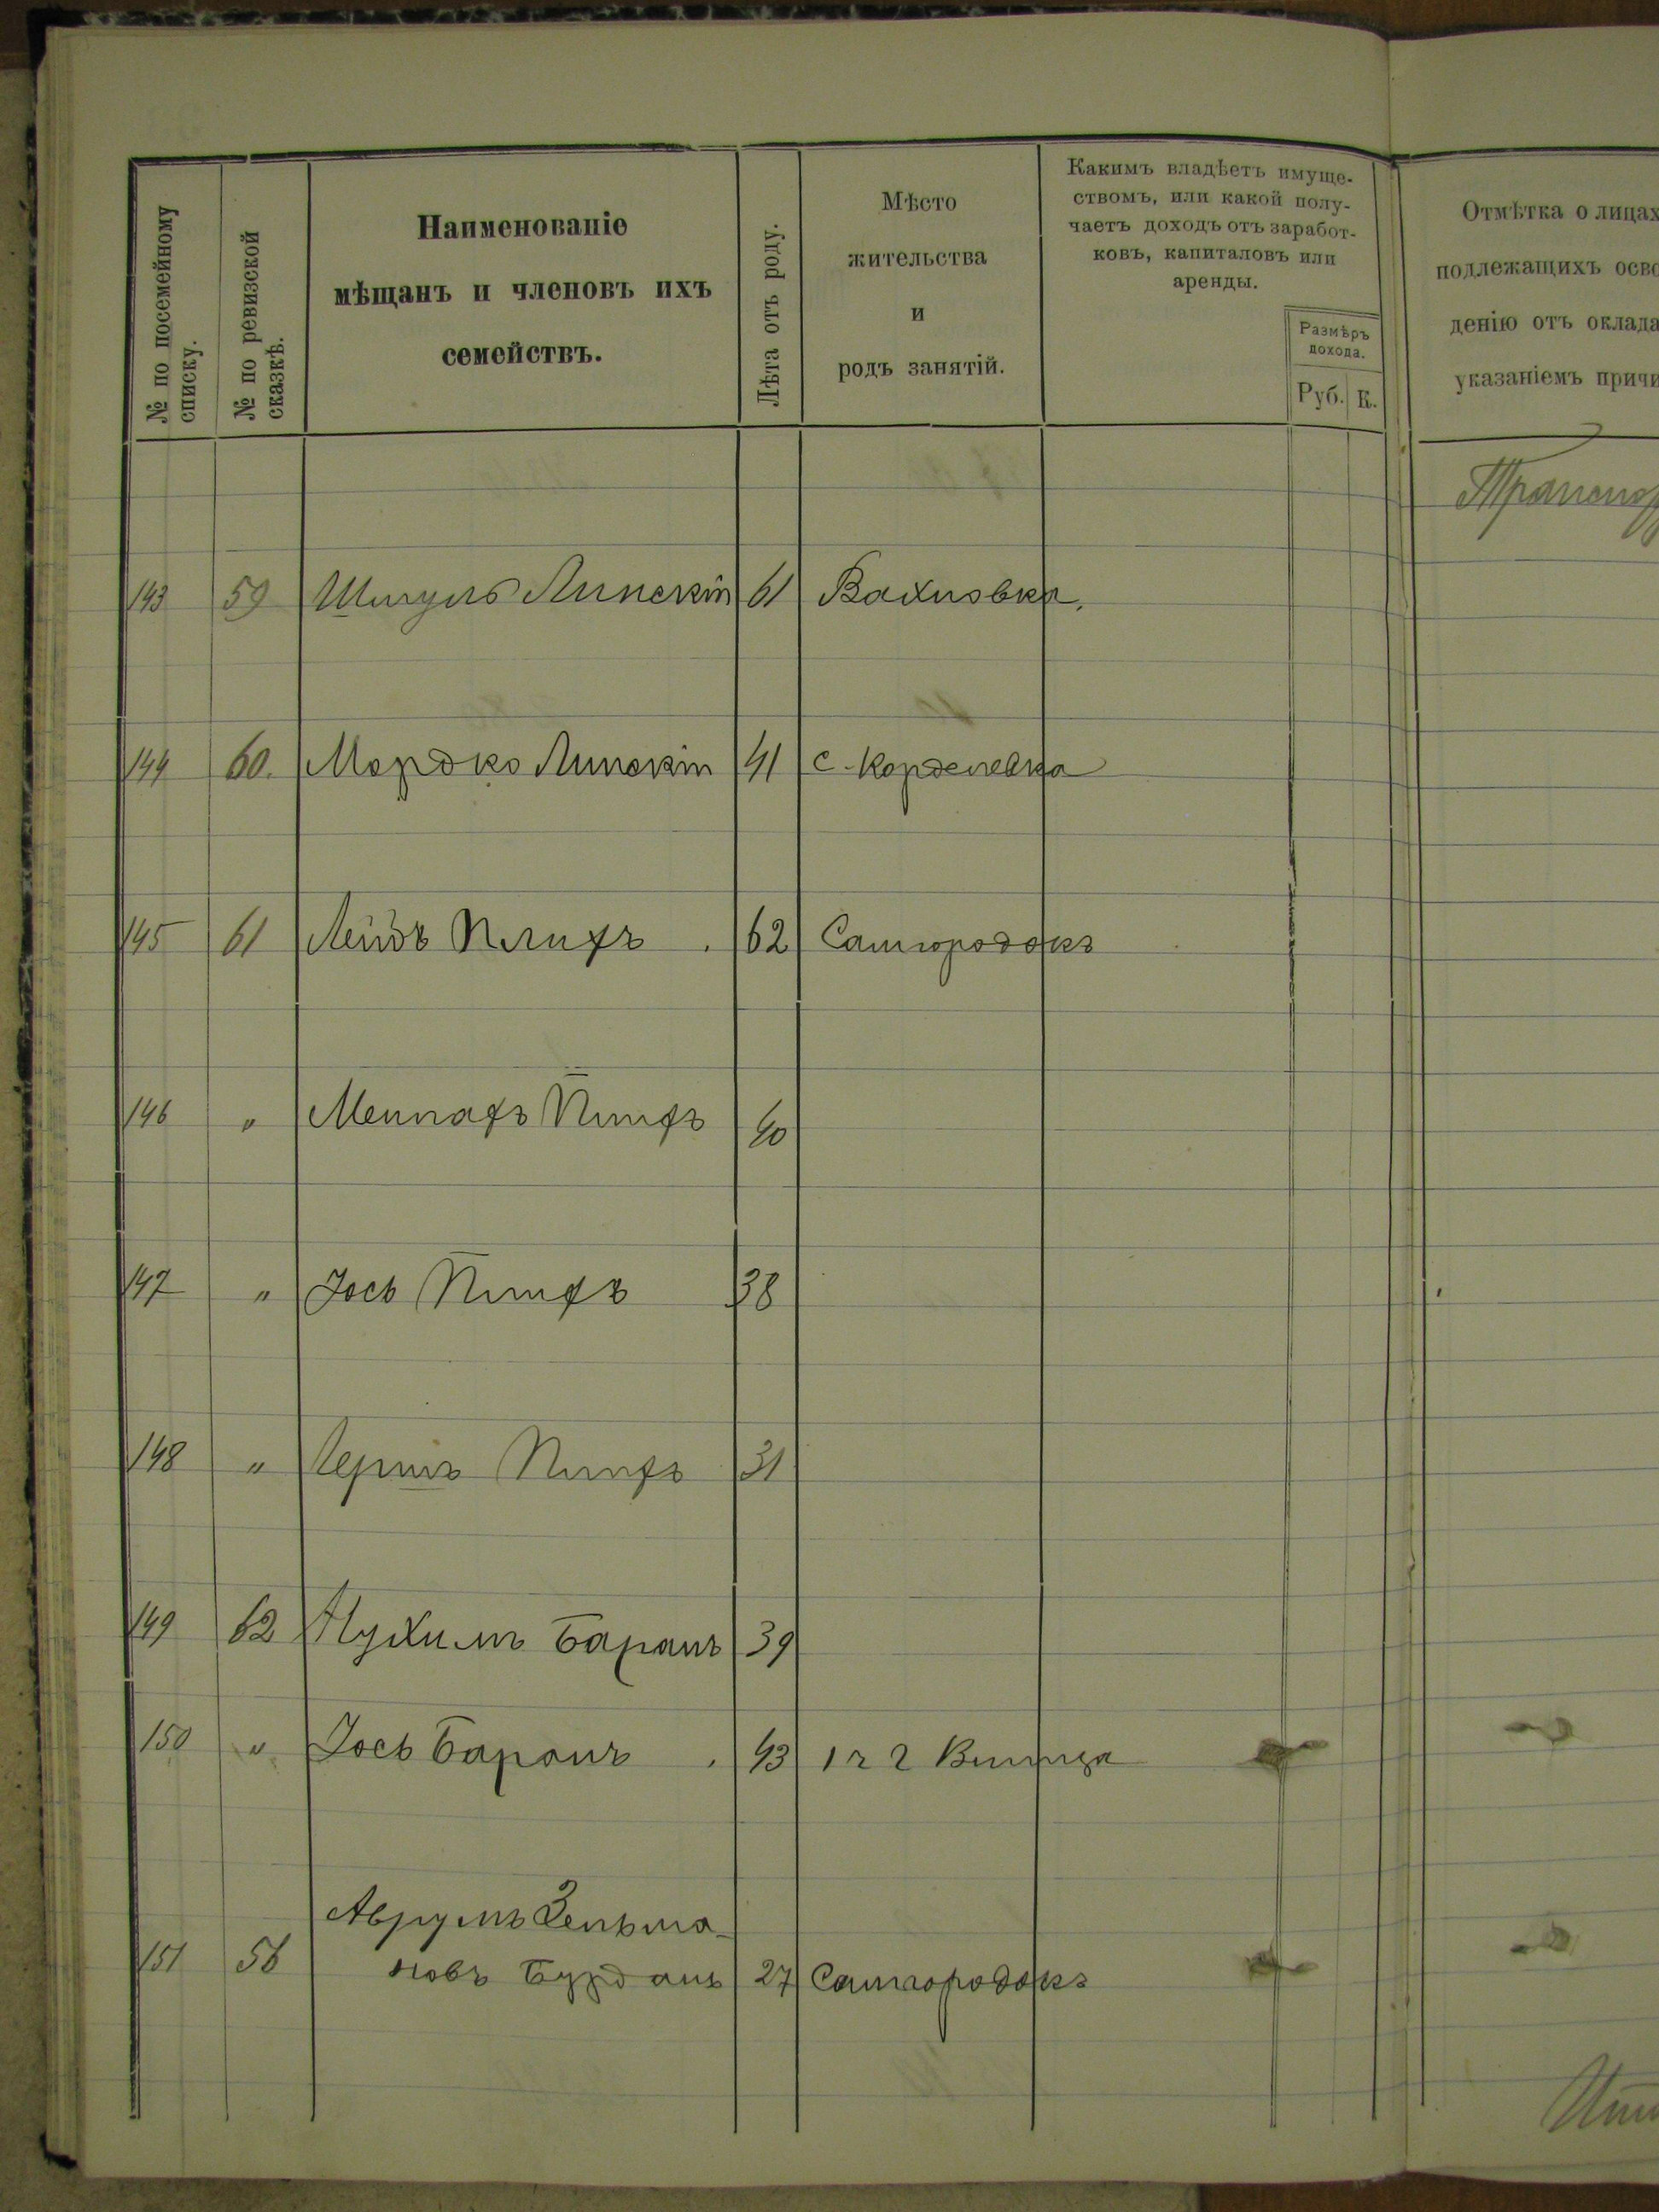 № по посемейному
списку.
№ по ревизской
сказкѣ.
Наименованіе
мѣщанъ и членовъ ихъ
семействъ.
Лѣта отъ роду.
Мѣсто
жительства
и
родъ занятій.
Какимъ владѣетъ имуще-
ствомъ, или какой полу-
чаетъ доходъ отъ заработ-
ковъ, капиталовъ или
аренды.
Размѣръ
дохода.
Руб. К.
Отмѣтка о лицах
подлежащихъ осво
денію отъ оклада
указаніемъ причи
Транспор
143 59 Шмуль Липскій 61 Вахновка.
144 60. Мордко Липскій 41 с. Корделевка
145 61 Лейбъ 62 Самгородокъ
146 " 40
147 " Іось 38
148 " Гершъ 31
149 62 Нухимъ Баранъ 39
150 " Іось Баранъ 43 1 ч г Винница
Аврумъ Зельма-
151 56 новъ Бурданъ 27 Самгородокъ
Ито